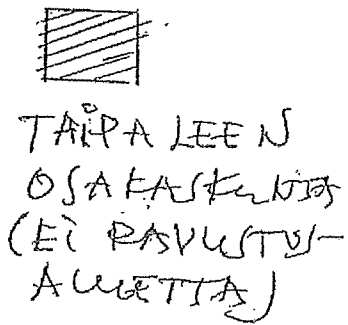 TAIPALEEN
OSAKASKUNTA
(EI RAVUSTUS-
ALUETTA)